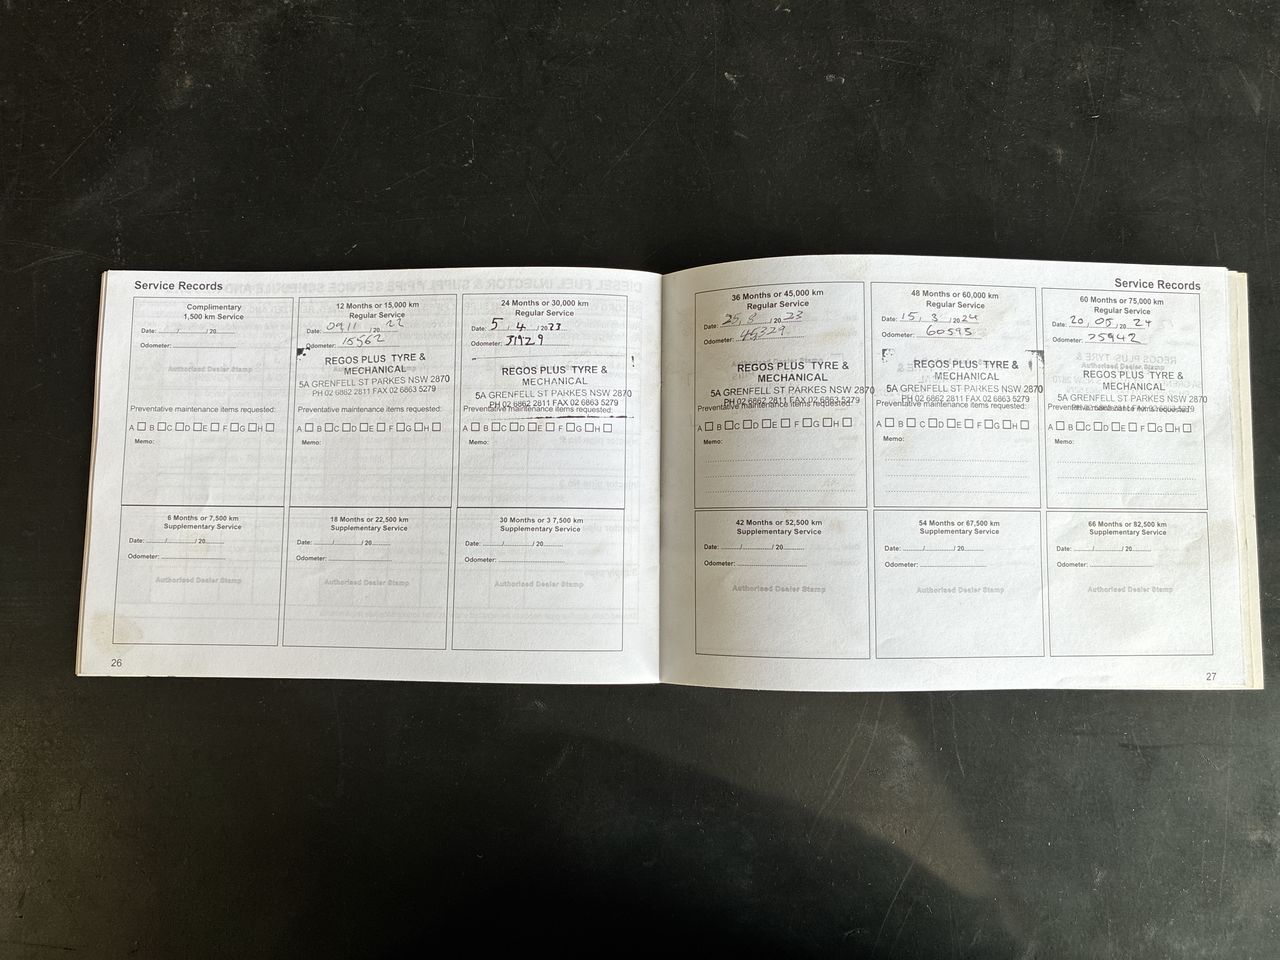 Service Records
Complimentary
1,500 km Service
Date: ____/____/ 20____
Odometer:
Authorised Dealer Stamp
Preventative maintenance items requested:
A B C D E F G H
Memo:
12 Months or 15,000 km
Regular Service
Date: 09/11/2022
Odometer: 15562
REGOS PLUS TYRE &
MECHANICAL
5A GRENFELL ST PARKES NSW 2870
PH 02 6862 2811 FAX 02 6863 5279
Preventative maintenance items requested:
A B C D E F G H
Memo:
24 Months or 30,000 km
Regular Service
Date: 5/4/2023
Odometer: 31729
REGOS PLUS TYRE &
MECHANICAL
5A GRENFELL ST PARKES NSW 2870
PH 02 6862 2811 FAX 02 6863 5279
Preventative maintenance items requested:
A B C D E F G H
Memo:
6 Months or 7,500 km
Supplementary Service
Date: ____/____/ 20____
Odometer:
Authorised Dealer Stamp
18 Months or 22,500 km
Supplementary Service
Date: ____/____/ 20____
Odometer:
Authorised Dealer Stamp
30 Months or 3 7,500 km
Supplementary Service
Date: ____/____/ 20____
Odometer:
Authorised Dealer Stamp
26
Service Records
36 Months or 45,000 km
Regular Service
Date: 25/8/2023
Odometer: 45329
REGOS PLUS TYRE &
MECHANICAL
5A GRENFELL ST PARKES NSW 2870
PH 02 6862 2811 FAX 02 6863 5279
Preventative maintenance items requested:
A B C D E F G H
Memo:
48 Months or 60,000 km
Regular Service
Date: 15/3/2024
Odometer: 60595
REGOS PLUS TYRE &
MECHANICAL
5A GRENFELL ST PARKES NSW 2870
PH 02 6862 2811 FAX 02 6863 5279
Preventative maintenance items requested:
A B C D E F G H
Memo:
60 Months or 75,000 km
Regular Service
Date: 20/05/2024
Odometer: 75942
Authorised Dealer Stamp
REGOS PLUS TYRE &
MECHANICAL
5A GRENFELL ST PARKES NSW 2870
PH 02 6862 2811 FAX 02 6863 5279
Preventative maintenance items requested:
A B C D E F G H
Memo:
42 Months or 52,500 km
Supplementary Service
Date: ____/____/ 20____
Odometer:
Authorised Dealer Stamp
54 Months or 67,500 km
Supplementary Service
Date: ____/____/ 20____
Odometer:
Authorised Dealer Stamp
66 Months or 82,500 km
Supplementary Service
Date: ____/____/ 20____
Odometer:
Authorised Dealer Stamp
27